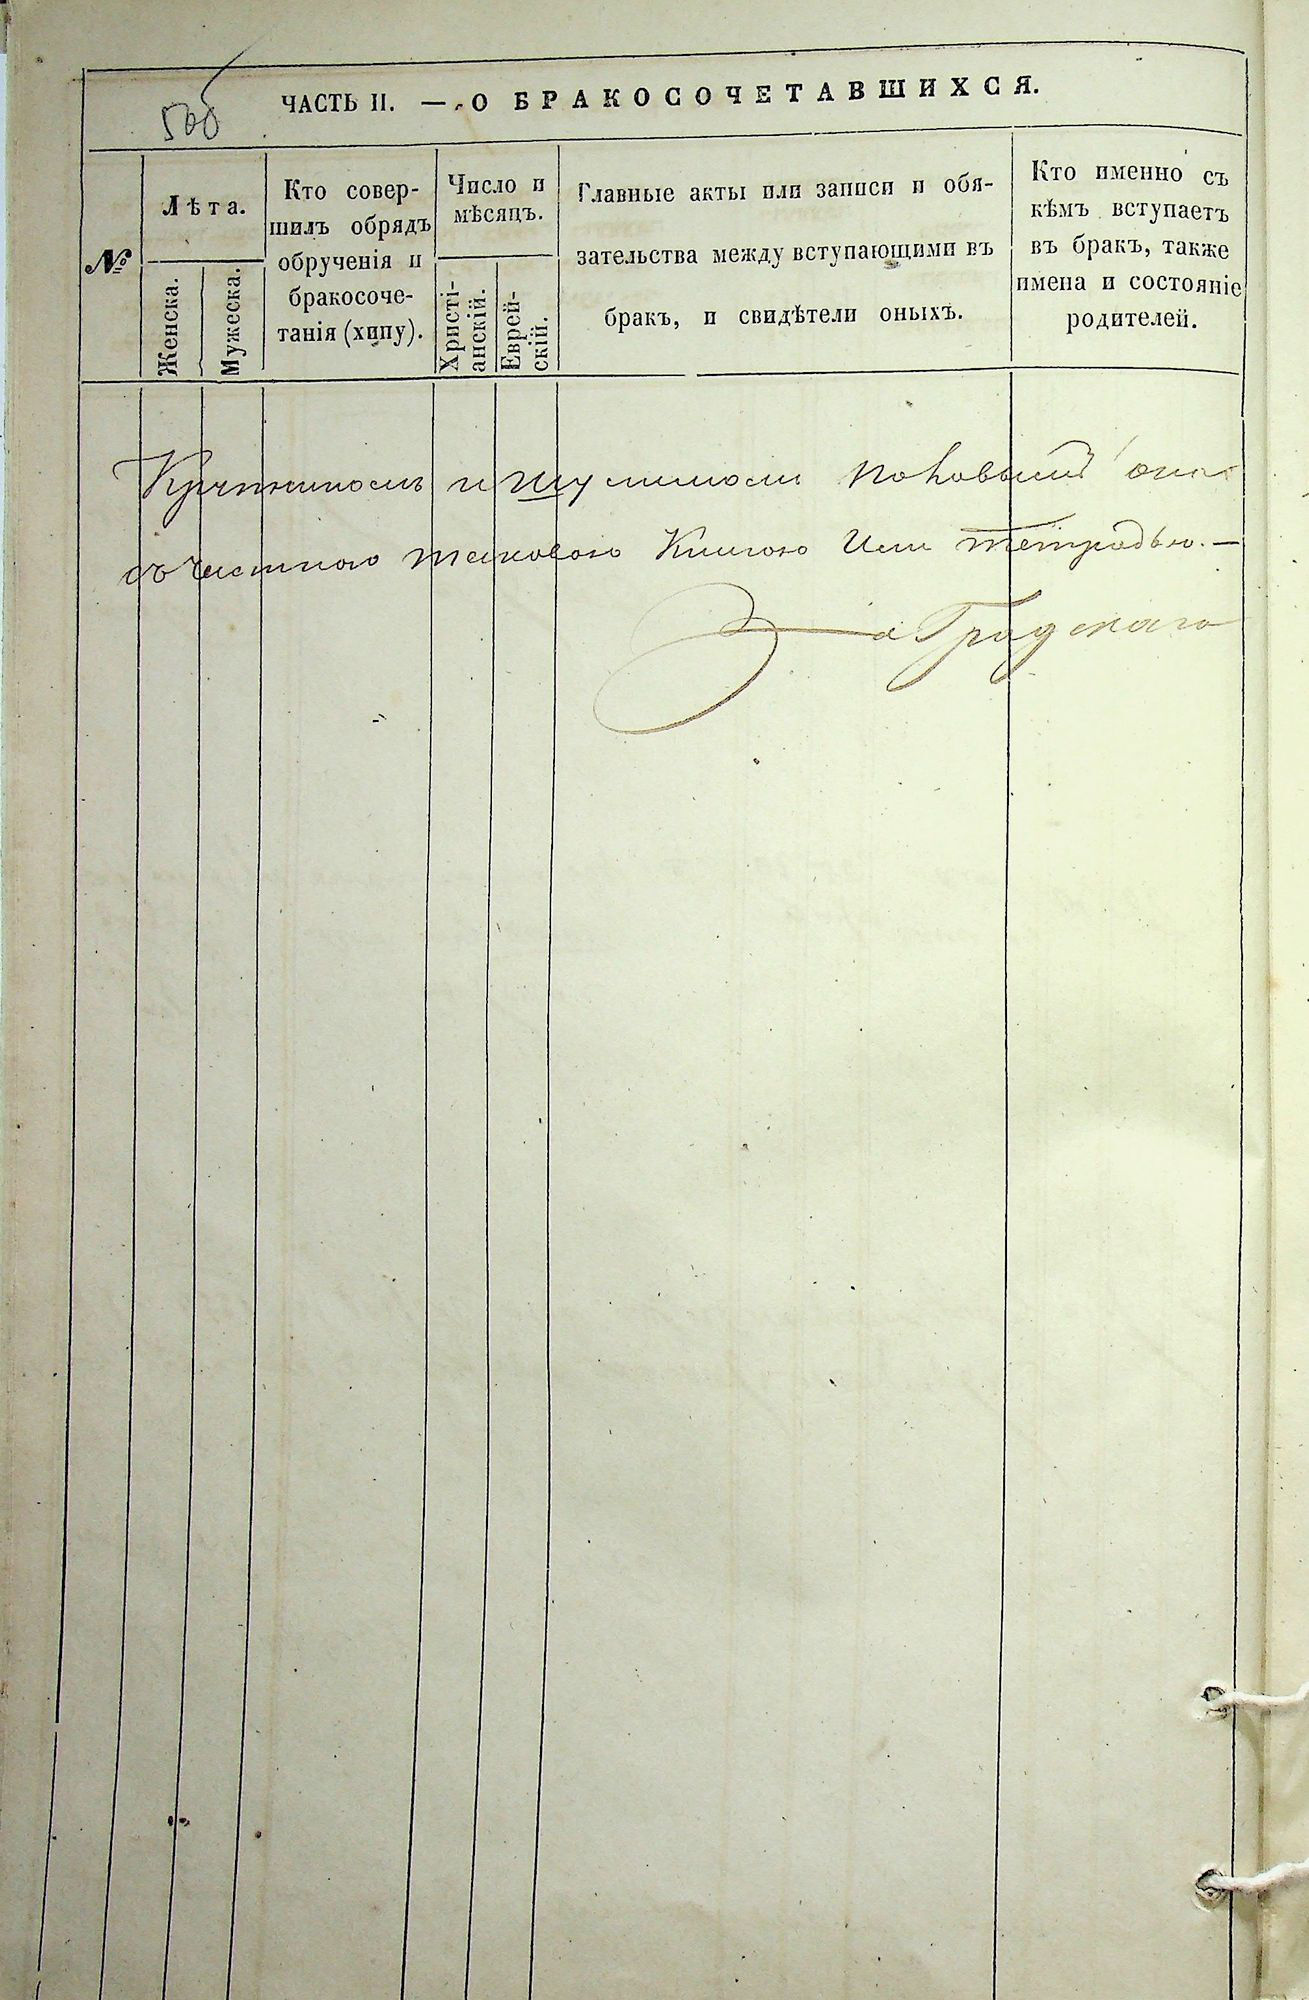 500
ЧАСТЬ II. — О БРАКОСОЧЕТАВШИХСЯ.
№
Лѣта.
Женска.
Мужеска.
Кто совер-
шилъ обрядъ
обрученія и
бракосоче-
танія (хипу).
Число и
мѣсяцъ.
Христі-
анскій.
Еврей-
скій.
Главные акты или записи и обя-
зательства между вступающими въ
бракъ, и свидѣтели оныхъ.
Кто именно съ
кѣмъ вступаетъ
въ бракъ, также
имена и состояніе
родителей.
и
съ таковою Книгою Или тетрадью. —
За Градскаго